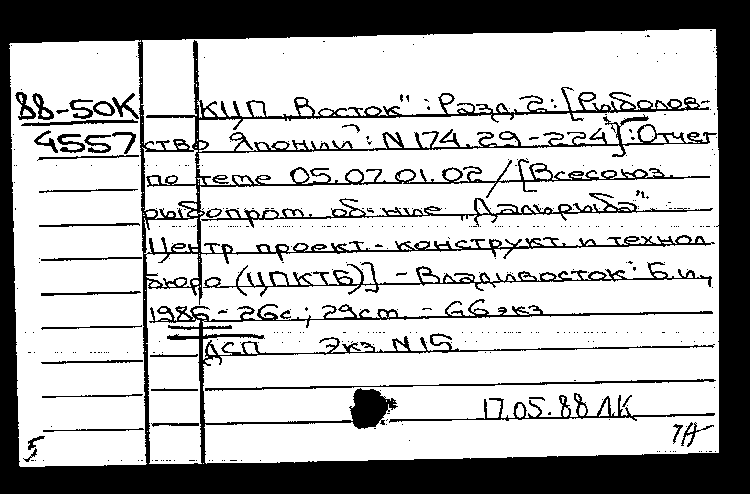 88-50К КЦП „Восток" : Разд. 2 : [Рыболов-
4557 ство Японии : N 174.29-224] : Отчет
по теме 05.07.01.02 / [Всесоюз.
рыбопром. об-ние „Дальрыба".
Центр. проект.-конструкт. и технол.
бюро (ЦПКТБ)] - Владивосток : Б.и.,
1986.- 26с.; 29см. - 66 экз
ДСП Экз. N 15.
17.05.88 ЛК
5